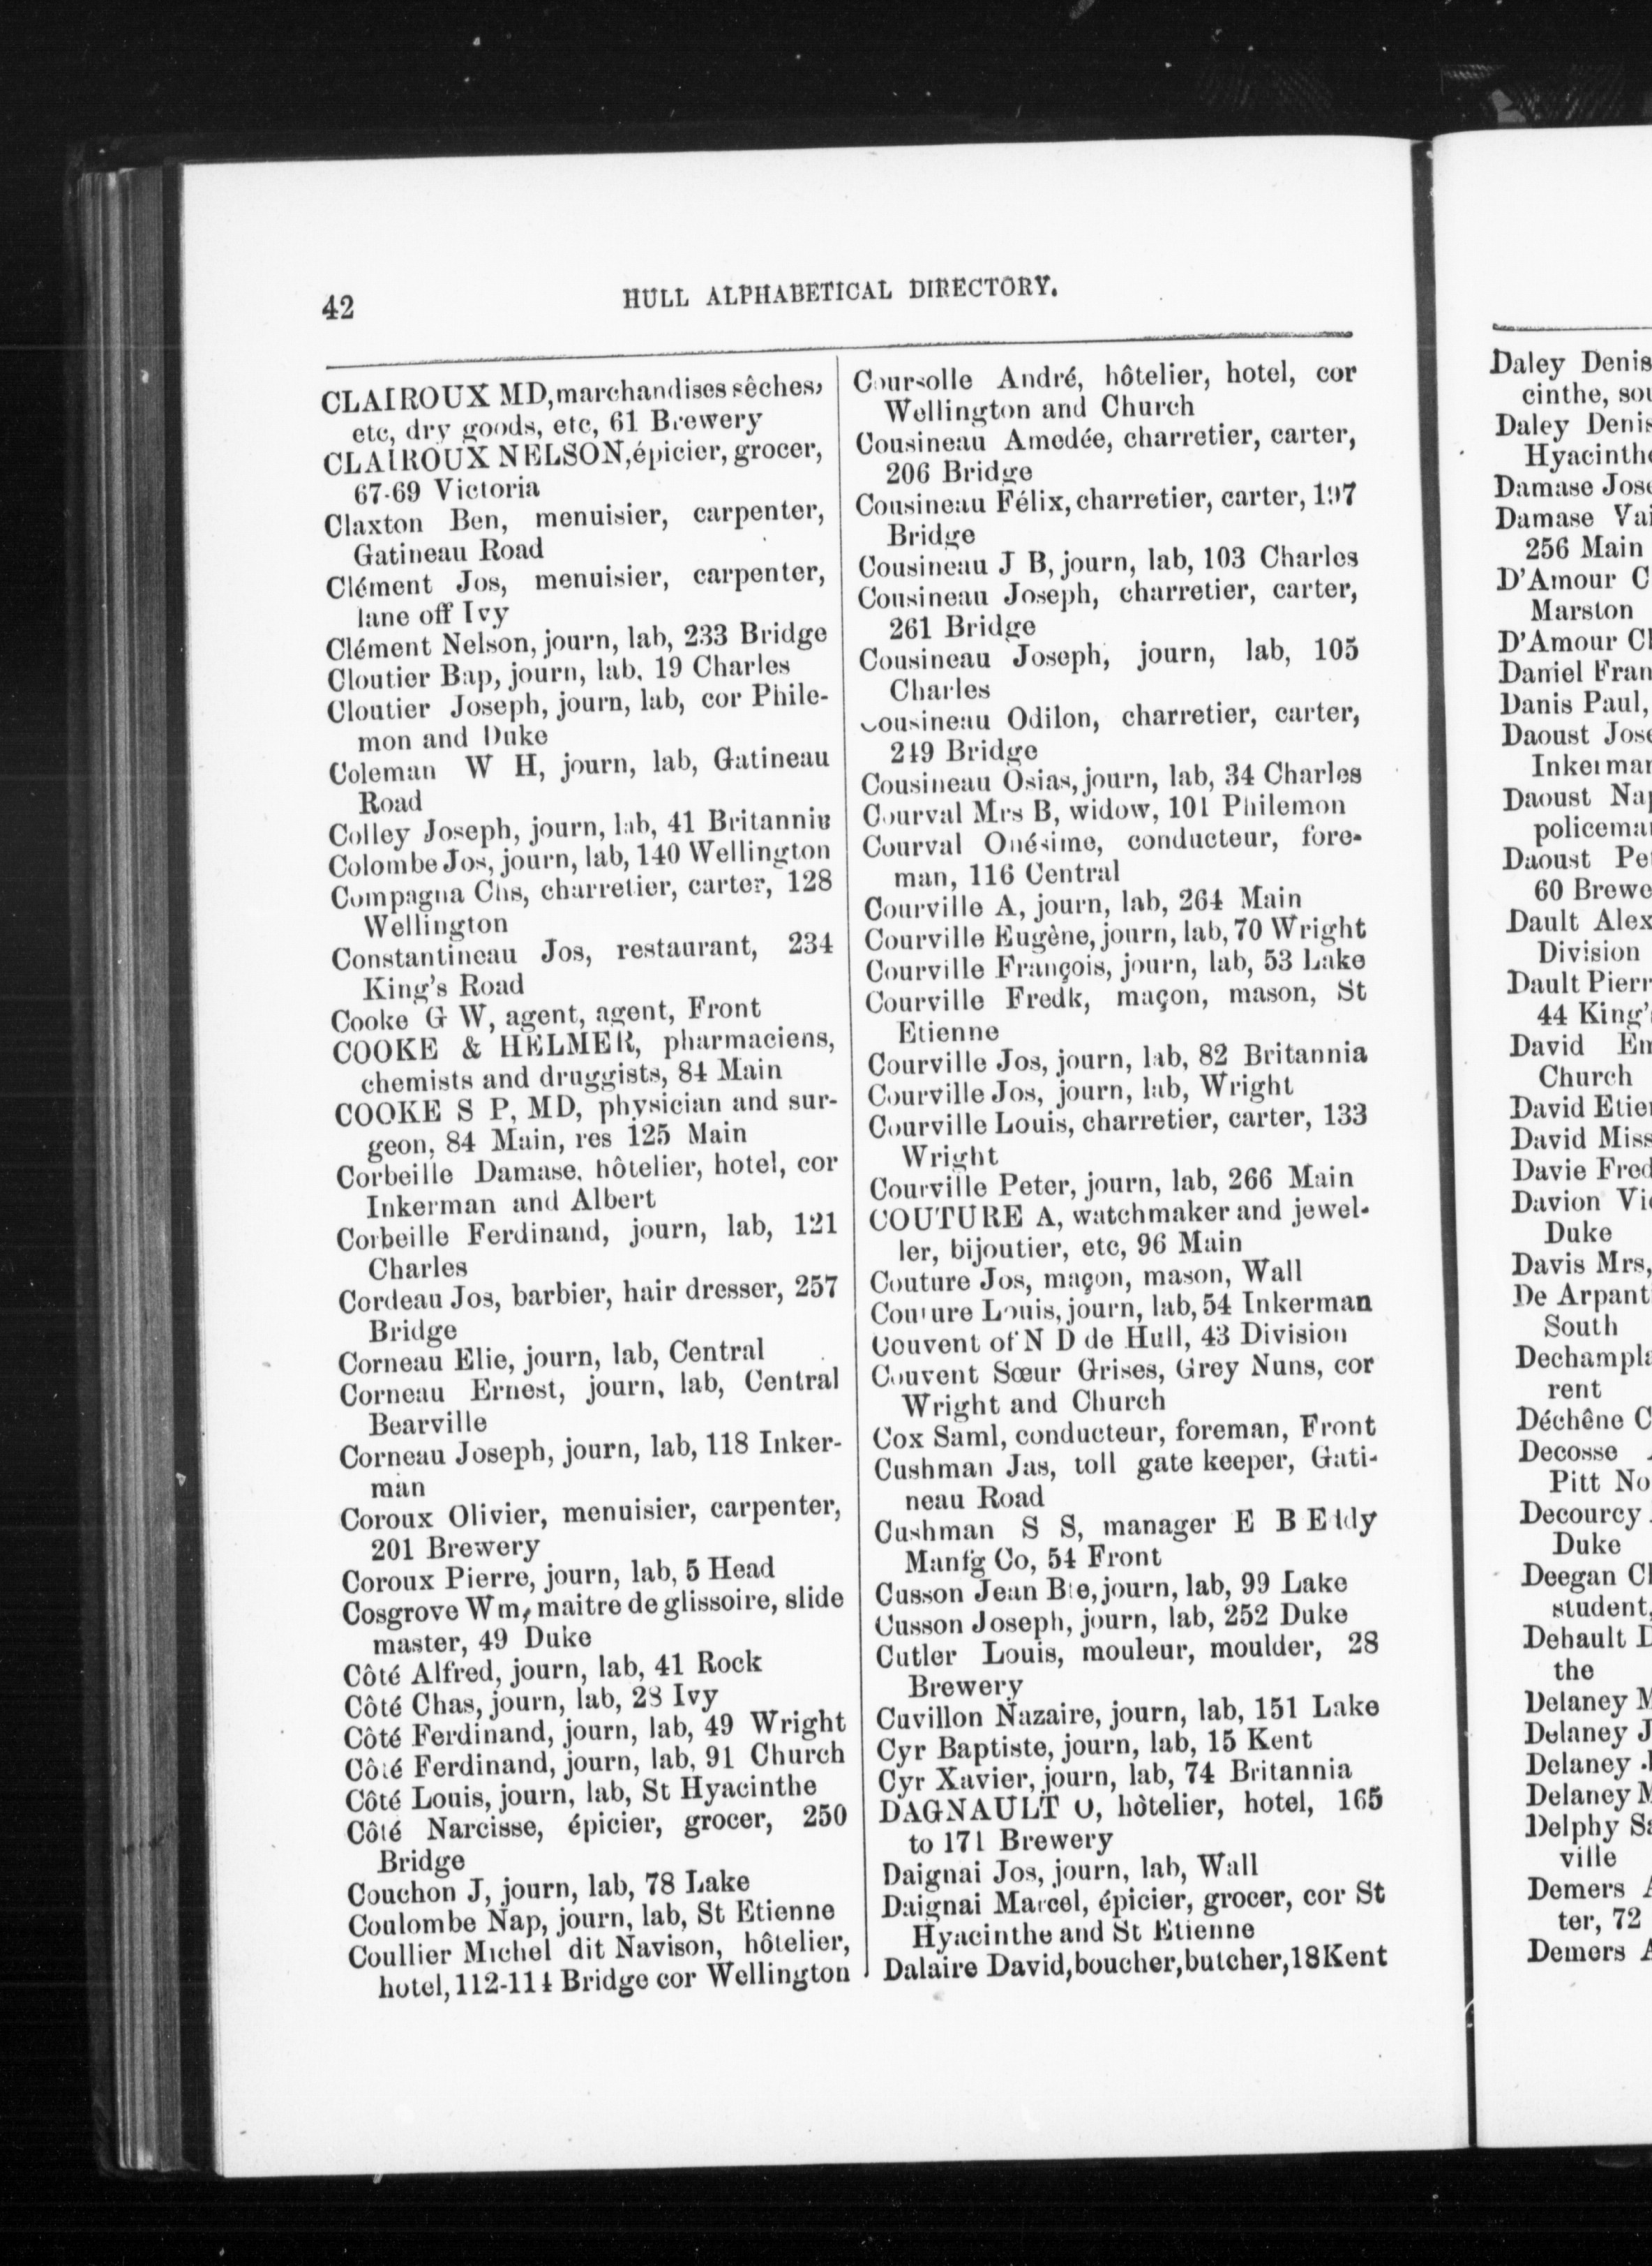 42
HULL ALPHABETICAL DIRECTORY.
CLAIROUX MD, marchandises sêches,
etc, dry goods, etc, 61 Brewery
CLAIROUX NELSON, épicier, grocer,
67-69 Victoria
Claxton Ben, menuisier, carpenter,
Gatineau Road
Clément Jos, menuisier, carpenter,
lane off Ivy
Clément Nelson, journ, lab, 233 Bridge
Cloutier Bap, journ, lab, 19 Charles
Cloutier Joseph, journ, lab, cor Phile-
mon and Duke
Coleman W H, journ, lab, Gatineau
Road
Colley Joseph, journ, lab, 41 Britannia
Colombe Jos, journ, lab, 140 Wellington
Compagna Chs, charretier, carter, 128
Wellington
Constantineau Jos, restaurant, 234
King's Road
Cooke G W, agent, agent, Front
COOKE & HELMER, pharmaciens,
chemists and druggists, 84 Main
COOKE S P, MD, physician and sur-
geon, 84 Main, res 125 Main
Corbeille Damase, hôtelier, hotel, cor
Inkerman and Albert
Corbeille Ferdinand, journ, lab, 121
Charles
Cordeau Jos, barbier, hair dresser, 257
Bridge
Corneau Elie, journ, lab, Central
Corneau Ernest, journ, lab, Central
Bearville
Corneau Joseph, journ, lab, 118 Inker-
man
Coroux Olivier, menuisier, carpenter,
201 Brewery
Coroux Pierre, journ, lab, 5 Head
Cosgrove Wm, maitre de glissoire, slide
master, 49 Duke
Côté Alfred, journ, lab, 41 Rock
Côté Chas, journ, lab, 28 Ivy
Côté Ferdinand, journ, lab, 49 Wright
Côté Ferdinand, journ, lab, 91 Church
Côté Louis, journ, lab, St Hyacinthe
Côté Narcisse, épicier, grocer, 250
Bridge
Couchon J, journ, lab, 78 Lake
Coulombe Nap, journ, lab, St Etienne
Coullier Michel dit Navison, hôtelier,
hotel, 112-114 Bridge cor Wellington
Coursolle André, hôtelier, hotel, cor
Wellington and Church
Cousineau Amedée, charretier, carter,
206 Bridge
Cousineau Félix, charretier, carter, 197
Bridge
Cousineau J B, journ, lab, 103 Charles
Cousineau Joseph, charretier, carter,
261 Bridge
Cousineau Joseph, journ, lab, 105
Charles
Cousineau Odilon, charretier, carter,
249 Bridge
Cousineau Osias, journ, lab, 34 Charles
Courval Mrs B, widow, 101 Philemon
Courval Onésime, conducteur, fore-
man, 116 Central
Courville A, journ, lab, 264 Main
Courville Eugène, journ, lab, 70 Wright
Courville François, journ, lab, 53 Lake
Courville Fredk, maçon, mason, St
Etienne
Courville Jos, journ, lab, 82 Britannia
Courville Jos, journ, lab, Wright
Courville Louis, charretier, carter, 133
Wright
Courville Peter, journ, lab, 266 Main
COUTURE A, watchmaker and jewel-
ler, bijoutier, etc, 96 Main
Couture Jos, maçon, mason, Wall
Couture Louis, journ, lab, 54 Inkerman
Couvent of N D de Hull, 43 Division
Couvent Sœur Grises, Grey Nuns, cor
Wright and Church
Cox Saml, conducteur, foreman, Front
Cushman Jas, toll gate keeper, Gati-
neau Road
Cushman S S, manager E B Eddy
Manfg Co, 54 Front
Cusson Jean Bte, journ, lab, 99 Lake
Cusson Joseph, journ, lab, 252 Duke
Cutler Louis, mouleur, moulder, 28
Brewery
Cuvillon Nazaire, journ, lab, 151 Lake
Cyr Baptiste, journ, lab, 15 Kent
Cyr Xavier, journ, lab, 74 Britannia
DAGNAULT O, hôtelier, hotel, 165
to 171 Brewery
Daignai Jos, journ, lab, Wall
Daignai Marcel, épicier, grocer, cor St
Hyacinthe and St Etienne
Dalaire David, boucher, butcher, 18 Kent
Daley Denis
cinthe, sou
Daley Denis
Hyacinthe
Damase Jose
Damase Vai
256 Main
D'Amour C
Marston
D'Amour Cl
Daniel Fran
Danis Paul,
Daoust Jose
Inkerman
Daoust Nap
policeman
Daoust Pe
60 Brewe
Dault Alex
Division
Dault Pierr
44 King's
David Em
Church
David Etien
David Miss
Davie Fred
Davion Vic
Duke
Davis Mrs,
De Arpant
South
Dechampla
rent
Déchêne C
Decosse
Pitt No
Decourcy
Duke
Deegan Cl
student,
Dehault D
the
Delaney M
Delaney J
Delaney J
Delaney M
Delphy Sa
ville
Demers A
ter, 72
Demers A